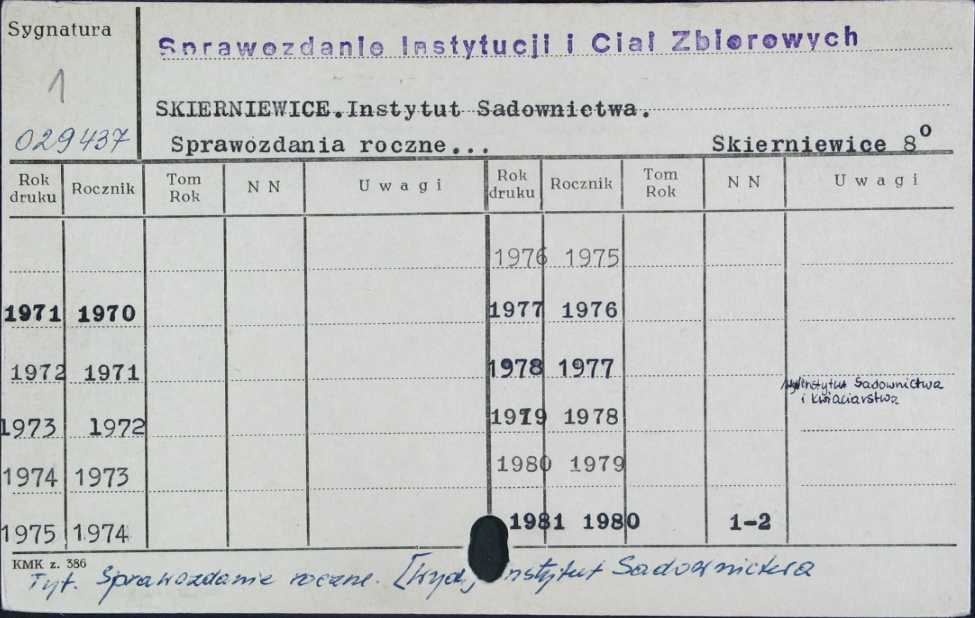 Sygnatura
Sprawozdanie Instytucji i Ciał Zbiorowych
1
SKIERNIEWICE.Instytut Sadownictwa.
029437
Sprawozdania roczne... Skierniewice 8°
Rok druku Rocznik Tom Rok N N Uwagi Rok druku Rocznik Tom Rok N N Uwagi
1976 1975
1971 1970 1977 1976
1972 1971 1978 1977
Instytut Sadownictwa
i Kwiaciarstwa
1973 1972 1979 1978
1974 1973 1980 1979
1975 1974 1981 1980 1-2
KMK z. 386
Tyt. Sprawozdanie roczne. [Wyd.] Instytut Sadownictwa